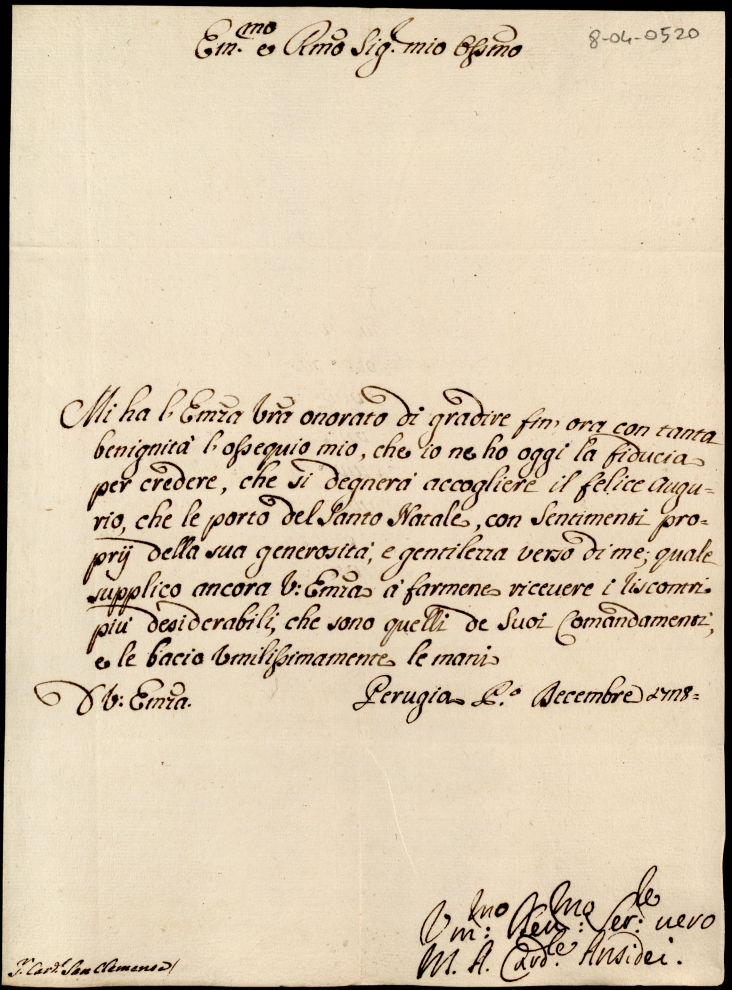 Em.mo e Rmo Sig.r mio Ossmo
8-04-0520
Mi ha l'Emza Vra onorato di gradire fin' ora con tanta
benignità l'ossequio mio, che io ne ho oggi la fiducia
per credere, che si degnerà accogliere il felice augu-
rio, che le porto del Santo Natale, con sentimenti pro-
prij della sua generosità, e gentilezza verso di me; quale
supplico ancora V: Emza a farmene ricevere i riscontri
più desiderabili, che sono quelli de Suoi Comandamenti,
e le bacio Vmilissimamente le mani
D V: Emza. Perugia P.o Decembre
Vm:mo Dev:mo Ser:le vero
M. A. Card.le Ansidei.
S.r Card.l San Clemente